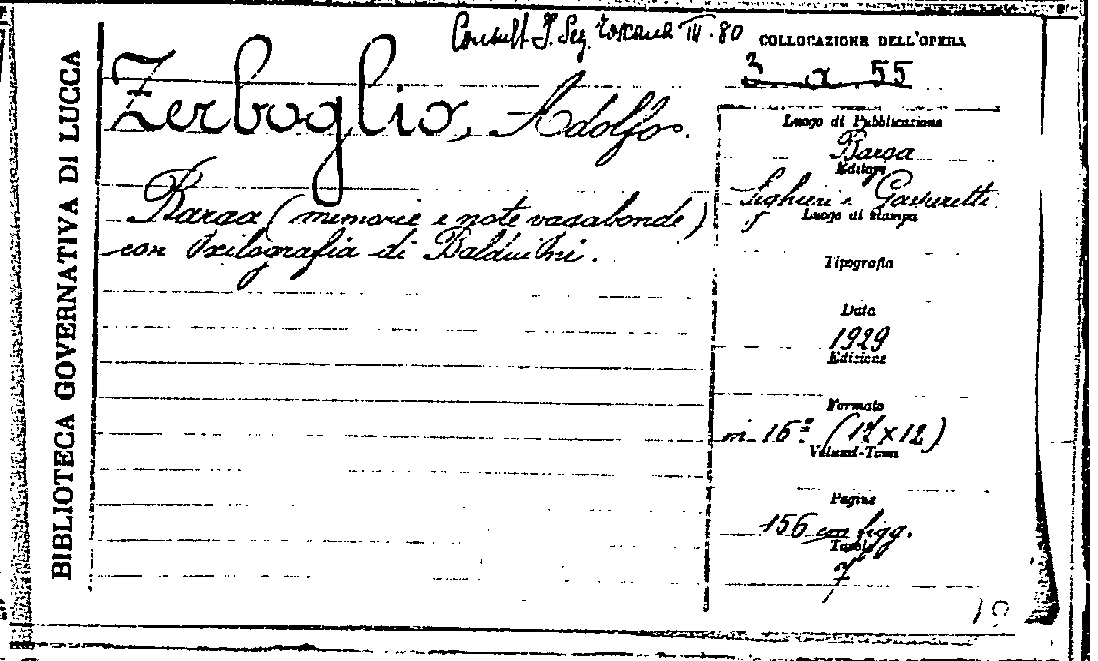 BIBLIOTECA GOVERNATIVA DI LUCCA
Consult. Toscana III. 80
COLLOCAZIONE DELL'OPERA
3 a 55
Zerboglio, Adolfo.
Barga (memorie e note vagabonde)
con Xilografia di Balduini.
Luogo di Pubblicazione
Barga
Editori
Sighieri e Gasperetti
Luogo di stampa
Tipografia
Data
1929
Edizione
Formato
in 16º (17 x 12)
Volumi-Tomi
Pagine
156 con figg.
Tavole
7
10